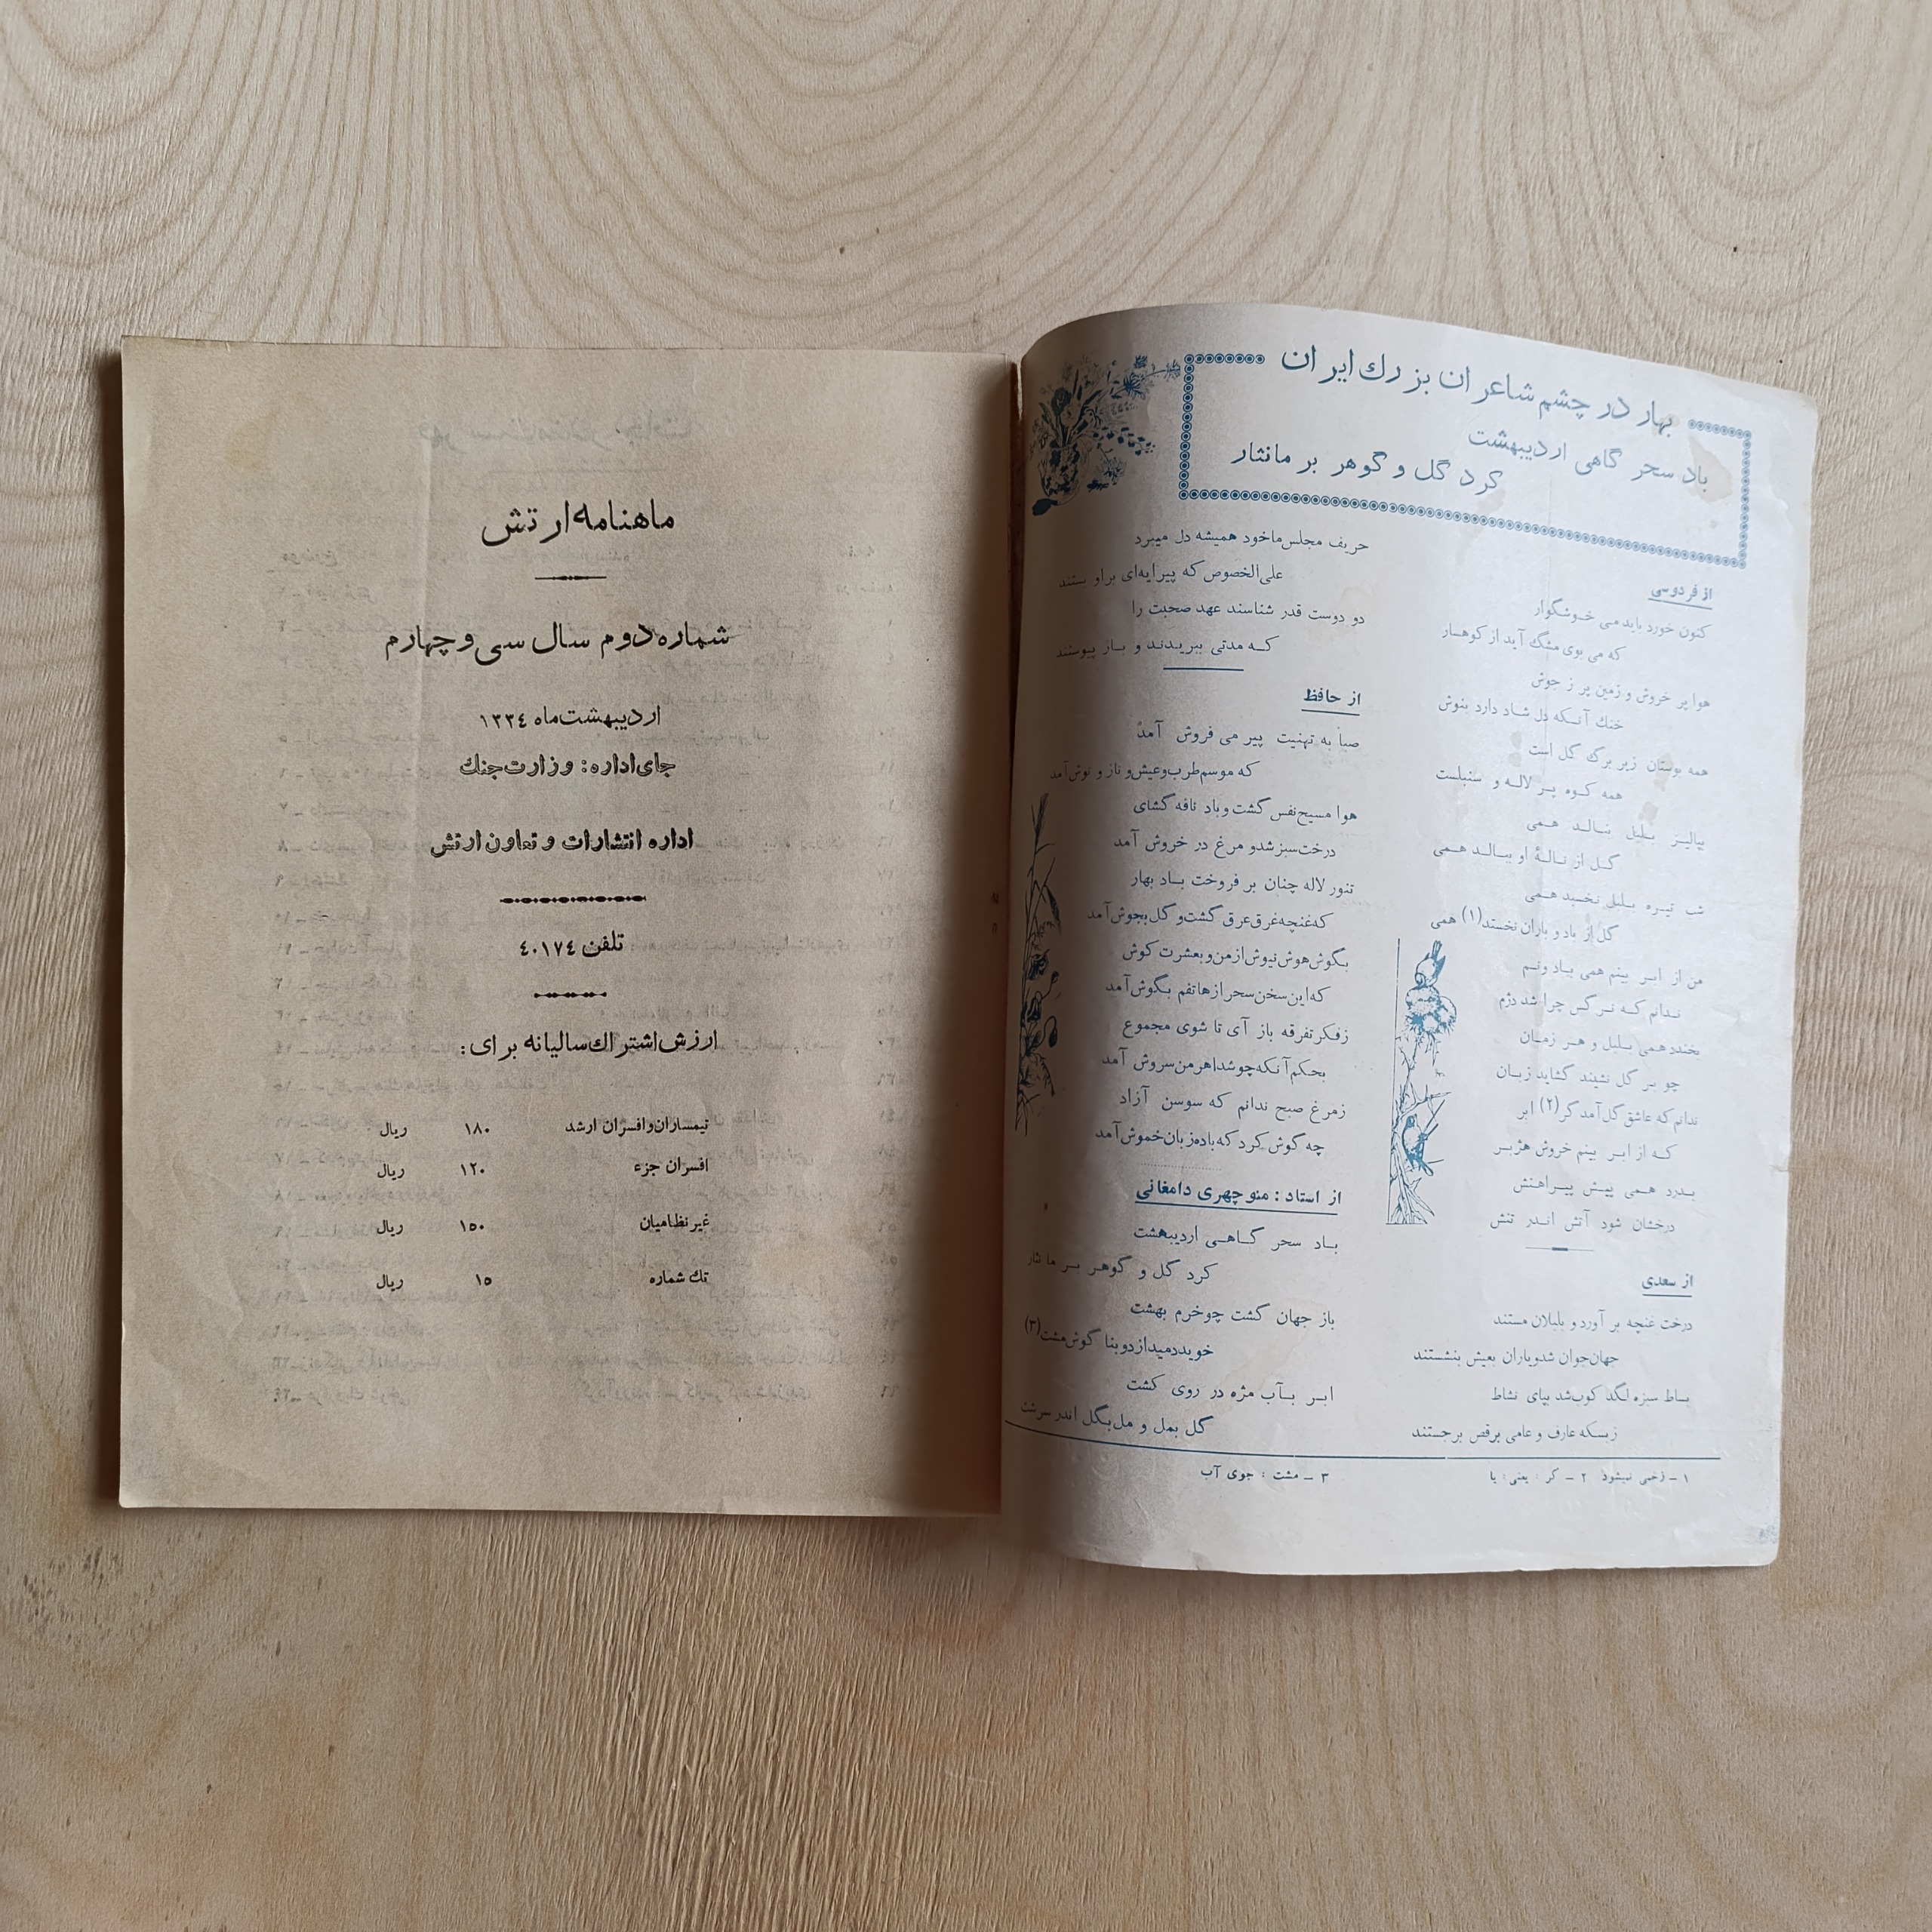 بهار در چشم شاعران بزرك ايران
باد سحر گاهی اردیبهشت
کرد گل و گوهر بر مانثار
از فردوسی
کنون خورد باید می خوشگوار
که می بوی مشگ آید از کوهسار
هوا پر خروش و زمین پر ز جوش
خنك آنکه دل شاد دارد بنوش
همه بوستان زیر برگ گل است
همه کوه پر لاله و سنبلست
بپالیز بلبل بنالد همی
گل از نالهٔ او ببالد همی
شب تیره بلبل نخسبد همی
گل از باد و باران نخستد(۱) همی
من از ابر بینم همی باد ونم
ندانم که نرگس چرا شد دژم
بخندد همی بلبل و هر زمان
چو بر گل نشیند گشاید زبان
ندانم که عاشق گل آمد گر(۲) ابر
که از ابر بینم خروش هژبر
بدرد همی پیش پیراهنش
درخشان شود آتش اندر تنش
از سعدی
درخت غنچه بر آورد و بلبلان مستند
جهان جوان شد و یاران بعیش بنشستند
بساط سبزه لگد کوب شد بپای نشاط
زبسکه عارف و عامی برقص برجستند
حریف مجلس ما خود همیشه دل میبرد
علی الخصوص که پیرایه‌ای براو بستند
دو دوست قدر شناسند عهد صحبت را
که مدتی ببریدند و باز پیوستند
از حافظ
صبا به تهنیت پیر می فروش آمد
که موسم طرب و عیش و ناز و نوش آمد
هوا مسیح نفس گشت و باد نافه گشای
درخت سبز شد و مرغ در خروش آمد
تنور لاله چنان بر فروخت باد بهار
که غنچه غرق عرق گشت و گل بجوش آمد
بگوش هوش نیوش از من و بعشرت کوش
که این سخن سحر از هاتفم بگوش آمد
زفکر تفرقه باز آی تا شوی مجموع
بحکم آنکه چو شد اهرمن سروش آمد
زمرغ صبح ندانم که سوسن آزاد
چه گوش کرد که باده زبان خموش آمد
از استاد : منوچهری دامغانی
باد سحر گاهی اردیبهشت
کرد گل و گوهر بر ما نثار
باز جهان گشت چو خرم بهشت
خوید دمید از دو بنا گوش مشت(۳)
ابر بآب مژه در روی کشت
گل بمل و مل بگل اندر سرشت
۱ - زخمی نمیشود ۲ - گر : یعنی : یا
۳ - مشت : جوی آب
ماهنامه ارتش
شماره دوم سال سی و چهارم
اردیبهشت ماه ۱۳۳٤
جای اداره: وزارت جنك
اداره انتشارات و تعاون ارتش
تلفن ٤٠١٧٤
ارزش اشتراك ساليانه برای:
تیمساران و افسران ارشد ۱۸۰ ریال
افسران جزء ۱۲۰ ریال
غیر نظامیان ۱۵۰ ریال
تك شماره ۱۵ ریال